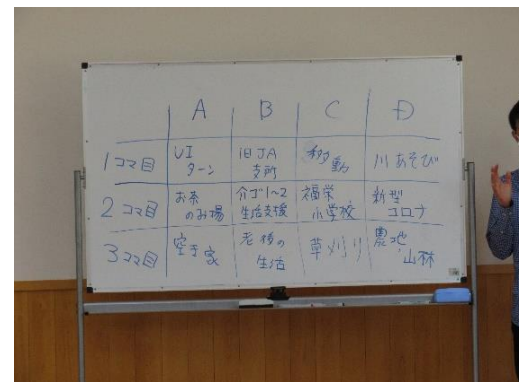 A B C D
1コマ目 UIターン 旧JA支所 移動 川あそび
2コマ目 お茶のみ場 介ゴ1~2生活支援 福栄小学校 新型コロナ
3コマ目 空き家 老後の生活 草刈り 農地・山林